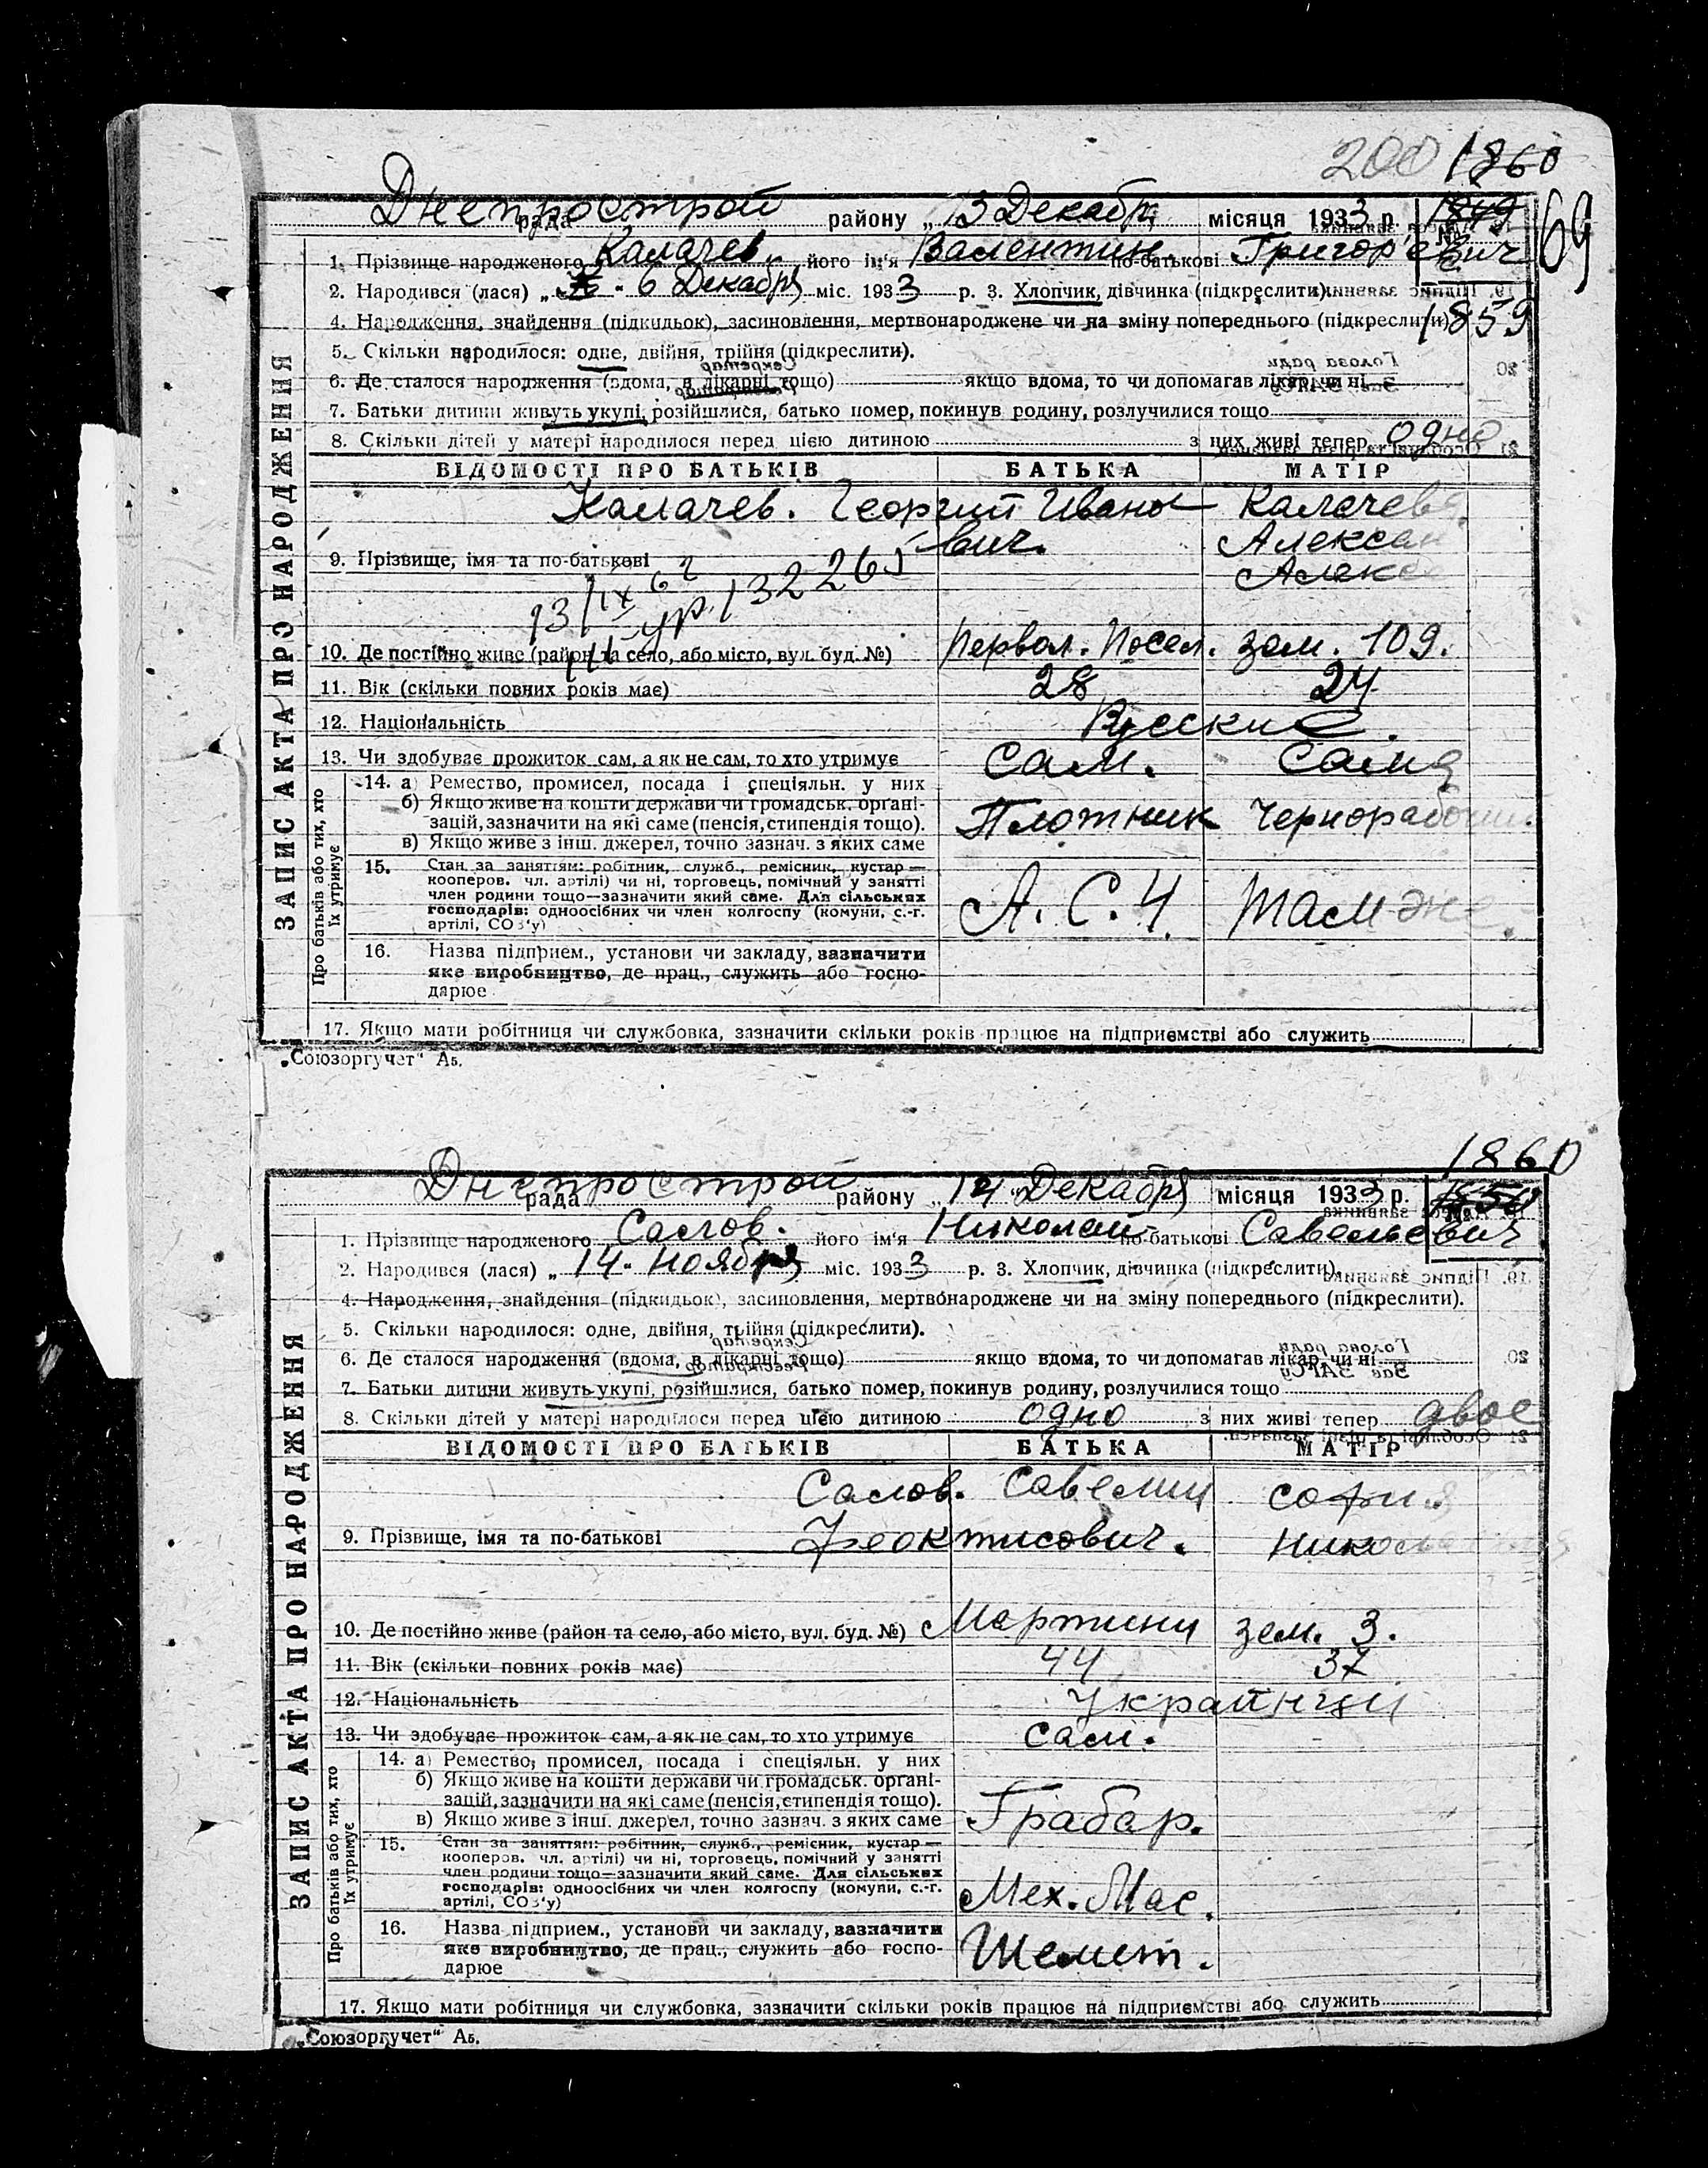 200 1860
Днепрострой
рада району „13 Декабр місяця 1933 р. 1849
69
1. Прізвище народженого Калачев його ім'я Валентин по-батькові Григор'евич
2. Народився (лася) „ 6 Декабря міс. 1933 р. 3. Хлопчик, дівчинка (підкреслити).
1859
4. Народження, знайдення (підкидьок), засиновлення, мертвонароджене чи на зміну попереднього (підкреслити)
5. Скільки народилося: одне, двійня, трійня (підкреслити).
6. Де сталося народження (вдома, в лікарні тощо) якщо вдома, то чи допомагав лікар, чи ні
7. Батьки дитини живуть укупі, розійшлися, батько помер, покинув родину, розлучилися тощо
8. Скільки дітей у матері народилося перед цією дитиною з них живі тепер одно
ВІДОМОСТІ ПРО БАТЬКІВ БАТЬКА МАТІР
Калачев. Георгий Ивано Калачева
вич. Алексан
9. Прізвище, імя та по-батькові
Алекс
13/IX 62
132265
10. Де постійно живе (район та село, або місто, вул. буд. №) Первом. Посел. зем. 109.
11. Вік (скільки повних років має) 28 24
12. Національність Русские.
13. Чи здобуває прожиток сам, а як не сам, то хто утримує сам. сама
14. а) Ремество, промисел, посада і спеціяльн. у них
б) Якщо живе на кошти держави чи громадськ. органі-
зацій, зазначити на які саме (пенсія, стипендія тощо). Плотник Чернорабочий.
в) Якщо живе з інш. джерел, точно зазнач. з яких саме
15. Стан за заняттям: робітник, служб., ремісник, кустар —
кооперов. чл. артілі) чи ні, торговець, помічний у занятті
член родини тощо—зазначити який саме. Для сільських
господарів: одноосібних чи член колгоспу (комуни, с.-г.
артілі, СОЗ'у) А. С. Ч. там же.
16. Назва підприєм., установи чи закладу, зазначити
яке виробництво, де прац., служить або госпо-
дарює
17. Якщо мати робітниця чи службовка, зазначити скільки років працює на підприємстві або служить
ЗАПИС АКТА ПРО НАРОДЖЕННЯ
Про батьків або тих, хто
їх утримує
„Союзоргучет“ Аб.
1860
Днепрострой
рада району „14 Декабря місяця 1933 р.
1. Прізвище народженого Саслов. його ім'я Николай по-батькові Савельевич
2. Народився (лася) „ 14. ноября міс. 1933 р. 3. Хлопчик, дівчинка (підкреслити).
4. Народження, знайдення (підкидьок), засиновлення, мертвонароджене чи на зміну попереднього (підкреслити).
5. Скільки народилося: одне, двійня, трійня (підкреслити).
6. Де сталося народження (вдома, в лікарні тощо) якщо вдома, то чи допомагав лікар, чи ні
7. Батьки дитини живуть укупі, розійшлися, батько помер, покинув родину, розлучилися тощо
8. Скільки дітей у матері народилося перед цією дитиною одно з них живі тепер двое
ВІДОМОСТІ ПРО БАТЬКІВ БАТЬКА МАТІР
Саслов. Савелий София
9. Прізвище, імя та по-батькові Феоктисович. Николаевна
10. Де постійно живе (район та село, або місто, вул. буд. №) Мартини зем. 3.
11. Вік (скільки повних років має) 44 37
12. Національність Украинци
13. Чи здобуває прожиток сам, а як не сам, то хто утримує сам.
14. а) Ремество, промисел, посада і спеціяльн. у них
б) Якщо живе на кошти держави чи громадськ. органі-
зацій, зазначити на які саме (пенсія, стипендія тощо).
в) Якщо живе з інш. джерел, точно зазнач. з яких саме Грабар.
15. Стан за заняттям: робітник, служб., ремісник, кустар —
кооперов. чл. артілі) чи ні, торговець, помічний у занятті
член родини тощо—зазначити який саме. Для сільських
господарів: одноосібних чи член колгоспу (комуни, с.-г.
артілі, СОЗ'у) Мех. Мас.
16. Назва підприєм., установи чи закладу, зазначити
яке виробництво, де прац., служить або госпо- Шемет.
дарює
17. Якщо мати робітниця чи службовка, зазначити скільки років працює на підприємстві або служить
ЗАПИС АКТА ПРО НАРОДЖЕННЯ
Про батьків або тих, хто
їх утримує
„Союзоргучет“ Аб.